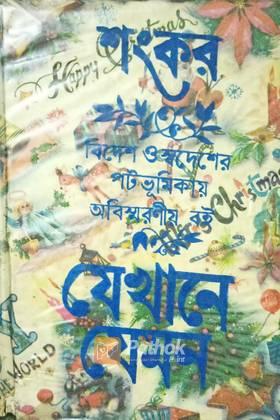 শংকর
Happy Christmas
বিদেশ ও স্বদেশের
পটভূমিকায়
অবিস্মরণীয় বই
Christmas
যেখানে
যেমন
Pathok
Point
WORLD